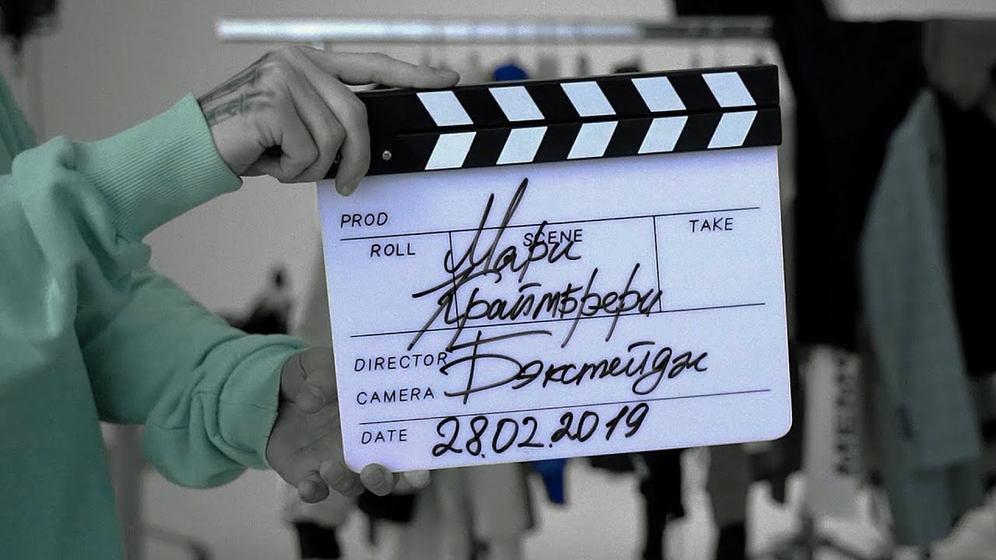 PROD
ROLL SCENE TAKE
Мари
Краймбрери
DIRECTOR Бэкстейдж
CAMERA
DATE 28.02.2019